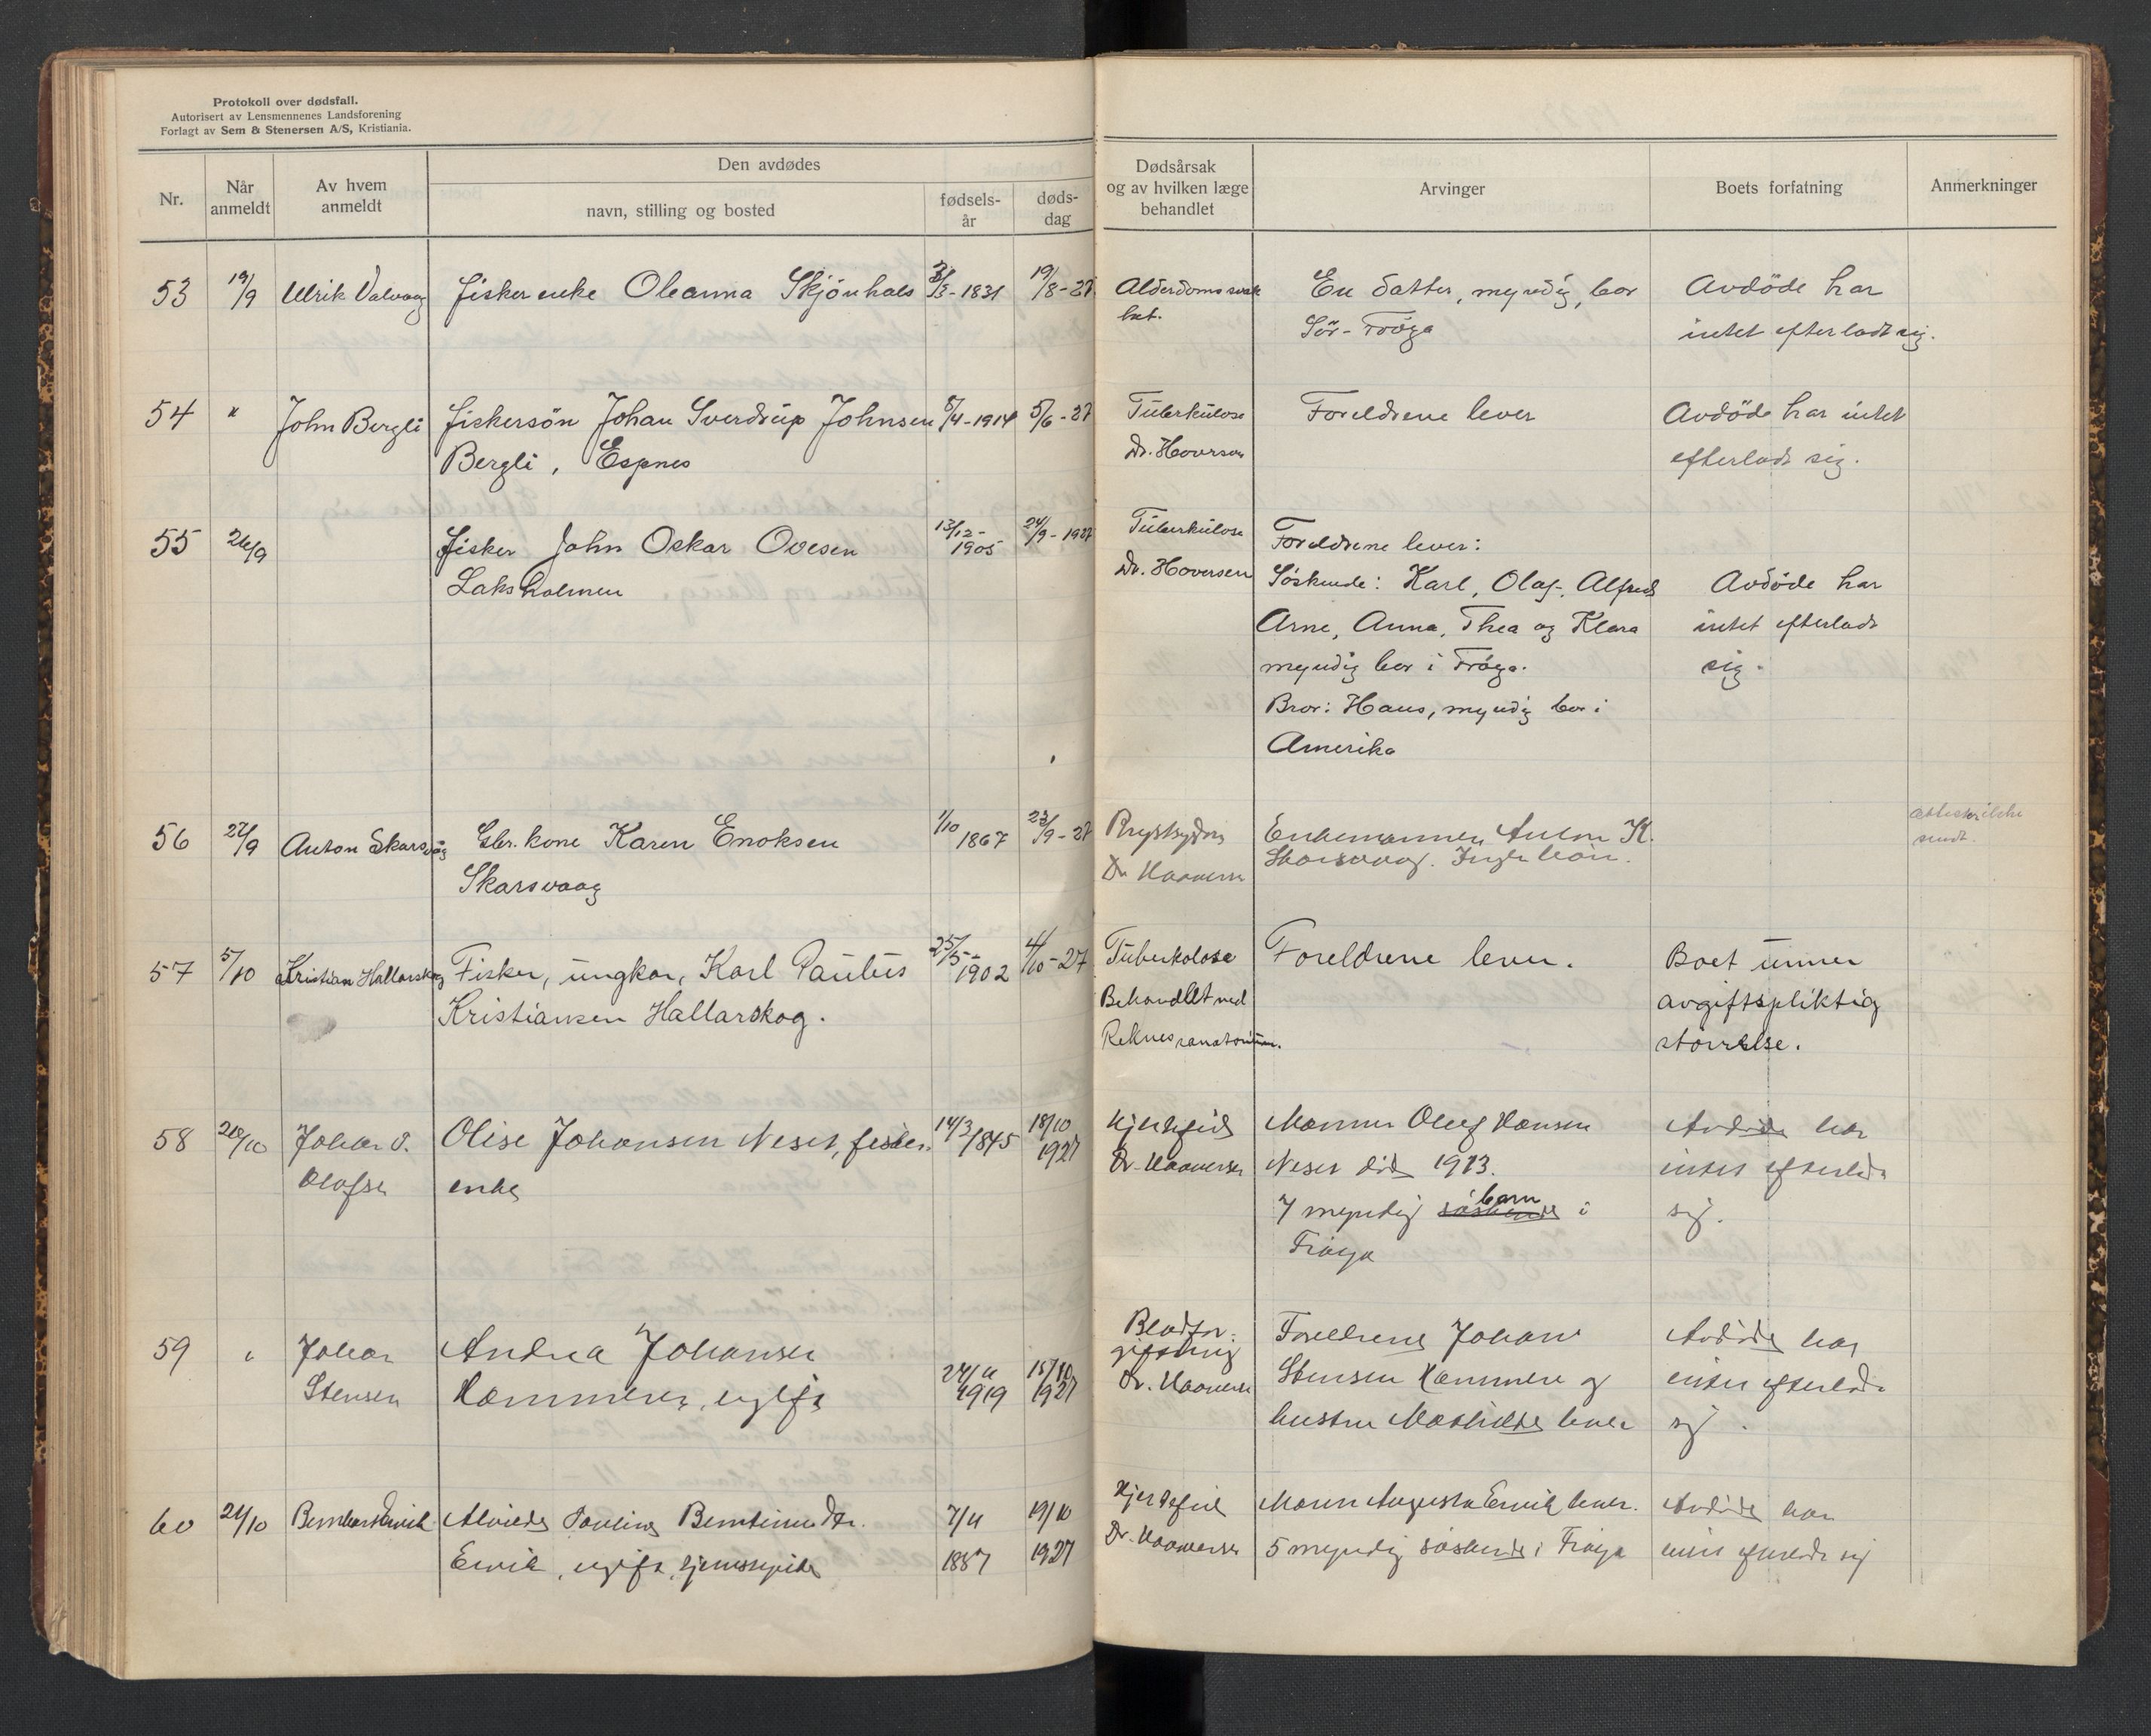 Protokoll over dødsfall.
Autorisert av Lensmennenes Landsforening
Forlagt av Sem & Stenersen A/S, Kristiania.
Nr.
Når anmeldt
Av hvem anmeldt
Den avdødes
navn, stilling og bosted
fødsels-år
døds-dag
Dødsårsak og av hvilken læge behandlet
Arvinger
Boets forfatning
Anmerkninger
53 19/9 Ulrik Valvaag fisker enke Oleanna Skjönhals 1831 19/8-27 Alderdomssvak En datter, myndig, bor Avdöde har
het. Sör-Fröya intet efterladt sig.
54 " John Bergli fiskersön Johan Sverdrup Johnsen 8/4-1914 5/6-27 Tüberkülose Foreldrene lever Avdöde har intet
Bergli, Espnes Dr. Hoversen efterladt sig.
55 26/9 fisker John Oskar Ovesen 13/12-1905 24/9-1927 Tüberkülose Foreldrene lever:
Laksholmen Dr. Hoversen Söskende: Karl, Olaf, Alfred Avdöde har
Arne, Anna, Thea og Klara intet efterladt
myndig bor i Fröya. sig.
Bror: Hans, myndig bor i
Amerika
56 27/9 Anton Skarsvåg Gbr. kone Karen Enoksen 1/10 1867 23/9-27 Brystsygdom Enkemannen Anton K.
Skarsvaag Dr Haaversen Skarsvaag. Ingen barn.
57 5/10 Kristian Hallarskog Fisker, ungkar, Karl Paulus 25/5-1902 4/10-27 Tüberkolose Foreldrene lever. Boet ünner
Kristiansen Hallarskog. Behandlet ved avgiftspliktig
Reknes sanatorium. störrelse.
58 20/10 Johan O. Olise Johansen Neset, fisker- 14/3/1845 18/10 1927 Hjertefeil Mannen Oluf Hansen Avdöde har
Olafsen enke Dr. Haaversen Neset död 1913. intet efterladt
7 myndig söskende barn i sig.
Fröya
59 Johan Andrea Johansen Blodfor- Foreldrene Johan Avdöde har
Stensen Hammeren, ugift 1919 15/10 1927 giftning Stensen Hammeren og intet efterladt
Dr. Haaversen hustru Mathilde lever sig.
60 21/10 Alvilde Pauline Berntinusdtr. 19/10 Hjertefeil Moren Augusta Ervik lever. Avdöde har
Ervik, ugift, 1887 1927 Dr. Haaversen 5 myndig söskende i Fröya intet efterladt sig